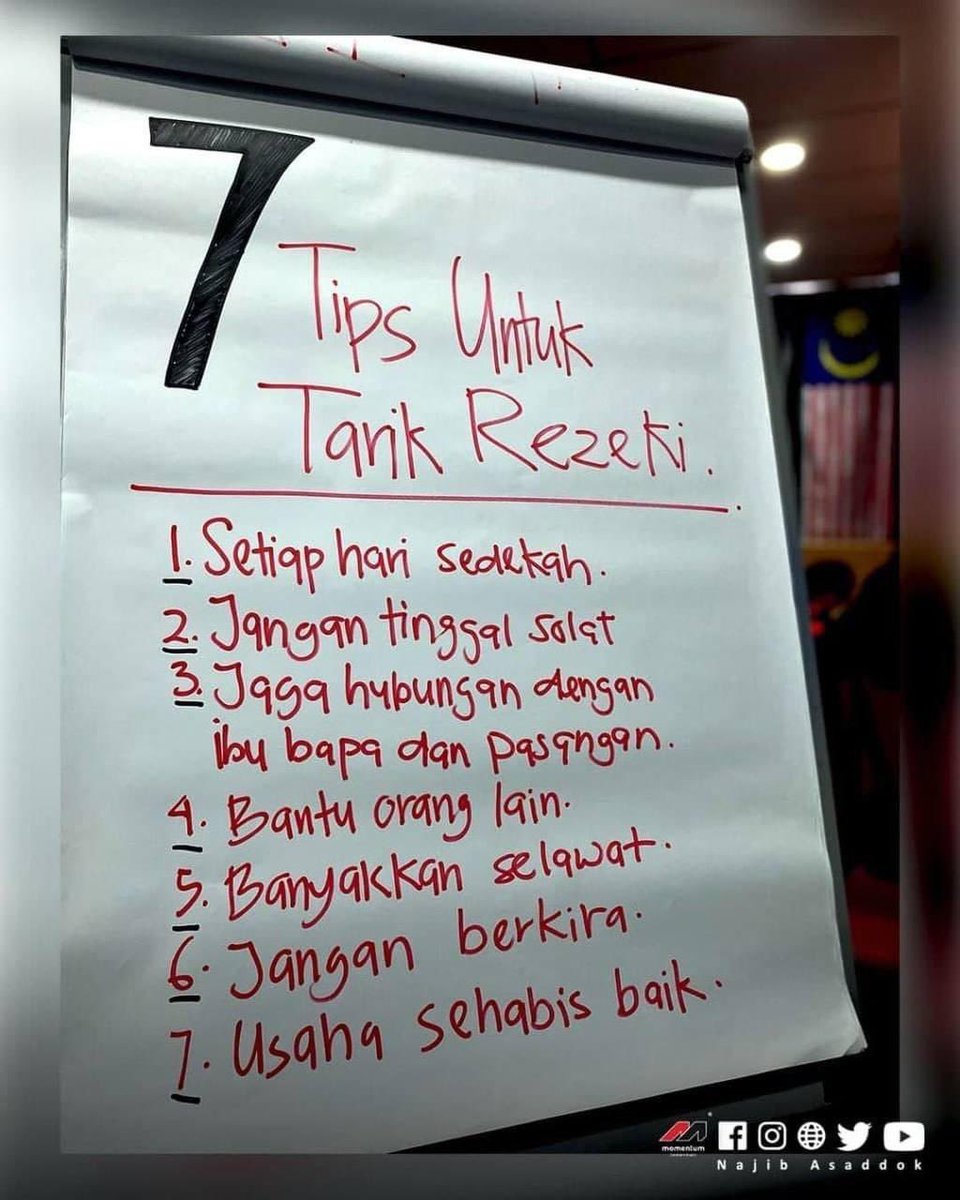 7
Tips Untuk
Tarik Rezeki.
1. Setiap hari sedekah.
2. Jangan tinggal solat
3. Jaga hubungan dengan
ibu bapa dan pasangan.
4. Bantu orang lain.
5. Banyakkan selawat.
6. Jangan berkira.
7. Usaha sehabis baik.
momentum
Najib Asaddok